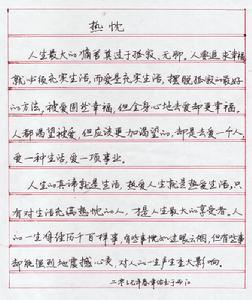 热忱
人生最大的痛苦莫过于孤寂、无聊。人要追求幸福
就必须充实生活,而爱是充实生活,摆脱孤寂的最好
的方法,被爱固然幸福,但全身心地去爱却更幸福。
人都渴望被爱,但应该更加渴望的,却是去爱一个人,
爱一种生活,爱一项事业。
人生的真谛就是生活,热爱人生就是热爱生活,只
有对生活充满热忱的人,才是人生最大的享受者。人
的一生将经历千百样事,有些事恍如过眼云烟,但有些事
却能强烈地震撼心灵,对人的一生产生重大影响。
二零一九年春